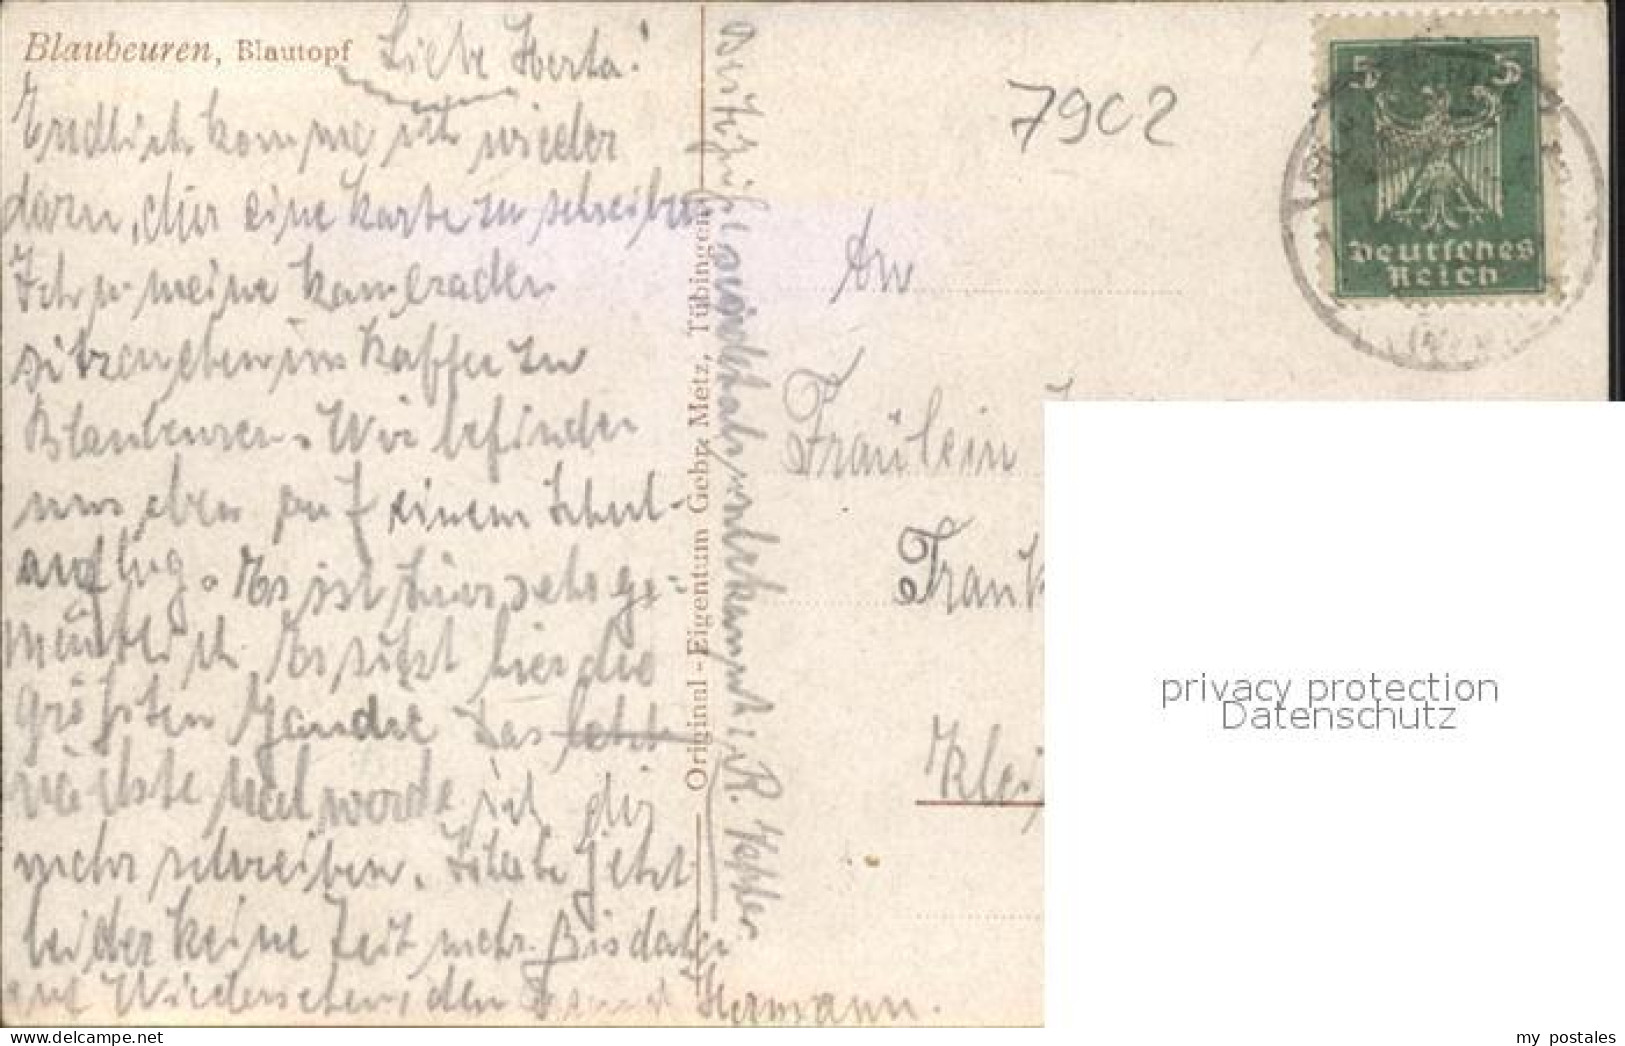 Blaubeuren, Blautopf
Liebe Herta!
Endlich komme ich wieder
dazu, dir eine Karte zu schreiben
Ich u. meine Kameraden
sitzen eben im Kaffee zu
Blaubeuren. Wir befinden
uns eben auf einem Schul-
ausflug. Es ist hier sehr ge-
mütlich. Es sitzt hier die
größten
Das
nächste Mal werde ich dir
mehr schreiben. Habe jetzt
leider keine Zeit mehr. Bis daher
auf Wiedersehen, dein Hermann.
Original-Eigentum Gebr. Metz, Tübingen
unbekannt
An
Fräulein
Frank
Klei
7902
5 5
Deutsches
Reich
privacy protection
Datenschutz
my postales